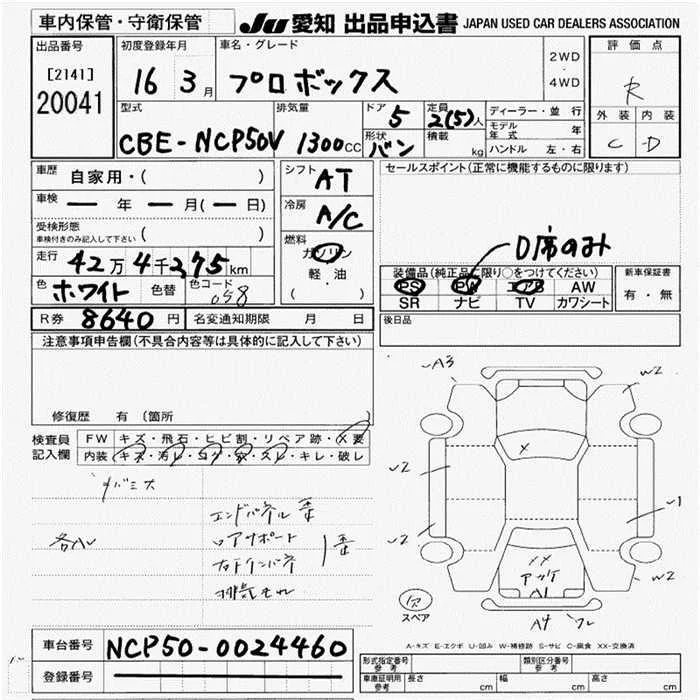 車内保管・守衛保管
JU 愛知 出品申込書 JAPAN USED CAR DEALERS ASSOCIATION
出品番号
[2141]
20041
初度登録年月
16 3月
車名・グレード
プロボックス
2WD
・
4WD
評価点
R
外装 内装
C D
型式
CBE-NCP50V
排気量
1300cc
ドア
5
定員
2(5)人
形状
バン
積載
kg
ディーラー・並行
モデル年式 年
ハンドル 左・右
車歴
自家用・( )
車検
— 年 — 月(— 日)
受検形態
車検付きのみ記入して下さい ( )
走行
42万4千275km
色
ホワイト
色替
色コード
058
シフト
AT
冷房
A/C
燃料
ガソリン
軽・油
( ・ )
セールスポイント(正常に機能するものに限ります)
D席のみ
装備品(純正品に限り○をつけてください)
PS PW エアB AW
SR ナビ TV カワシート
新車保証書
有・無
R券 8640円
名変通知期限 月 日
後日品
注意事項申告欄(不具合内容等は具体的に記入して下さい)
修復歴 有(箇所 )
検査員記入欄
FW キズ・飛石・ヒビ割・リペア跡・X要
内装 キズ・汚レ・コゲ・穴・スレ・キレ・破レ
エンドパネル
ロアサポート
各ハレ
A3
W2
X
XX
A1
A4
スペア
A-キズ E-エクボ U-凹み W-補修跡 S-サビ C-腐食 XX-交換済
車台番号
NCP50-0024460
登録番号
形式指定番号 参考
類別区分番号 参考
車庫証明用 参考
長さ cm
幅 cm
高さ cm